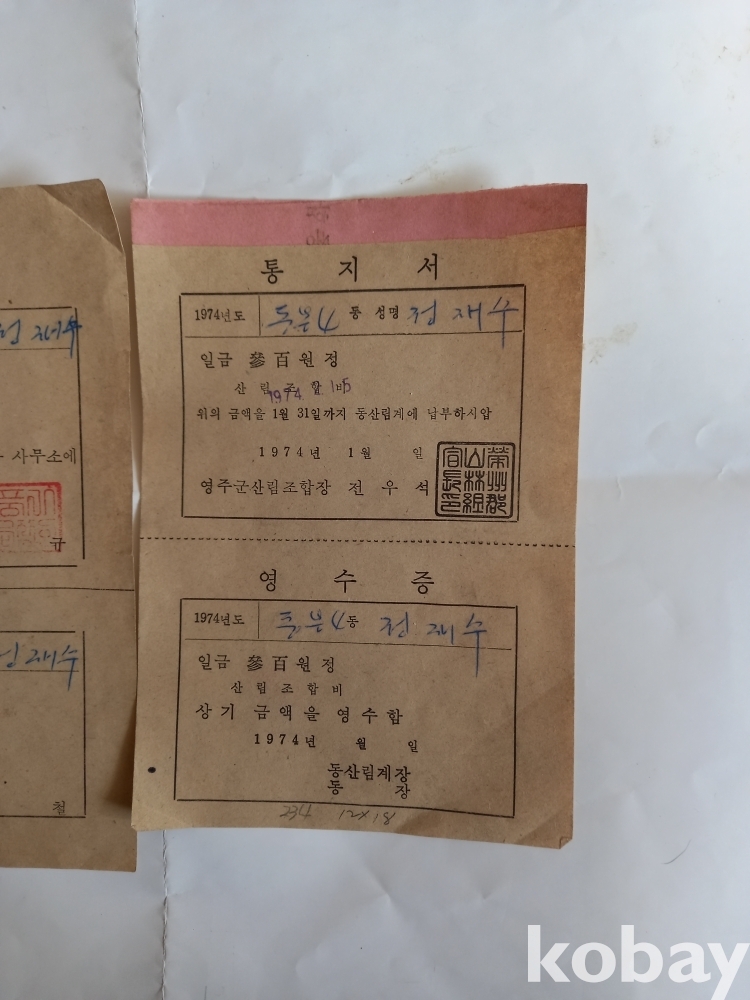 통지서
1974년도 동 성명 전재수
일금 參百원정
산림조합비
1974. 1. 15
위의 금액을 1월 31일까지 동산림계에 납부하시압
1974년 1월 일
영주군산림조합장 전우석
榮州郡山林組合長印
영수증
1974년도 동 전재수
일금 參百원정
산림조합비
상기 금액을 영수함
1974년 월 일
동산림계장
동장
12x18
사무소에
규
재수
철
kobay